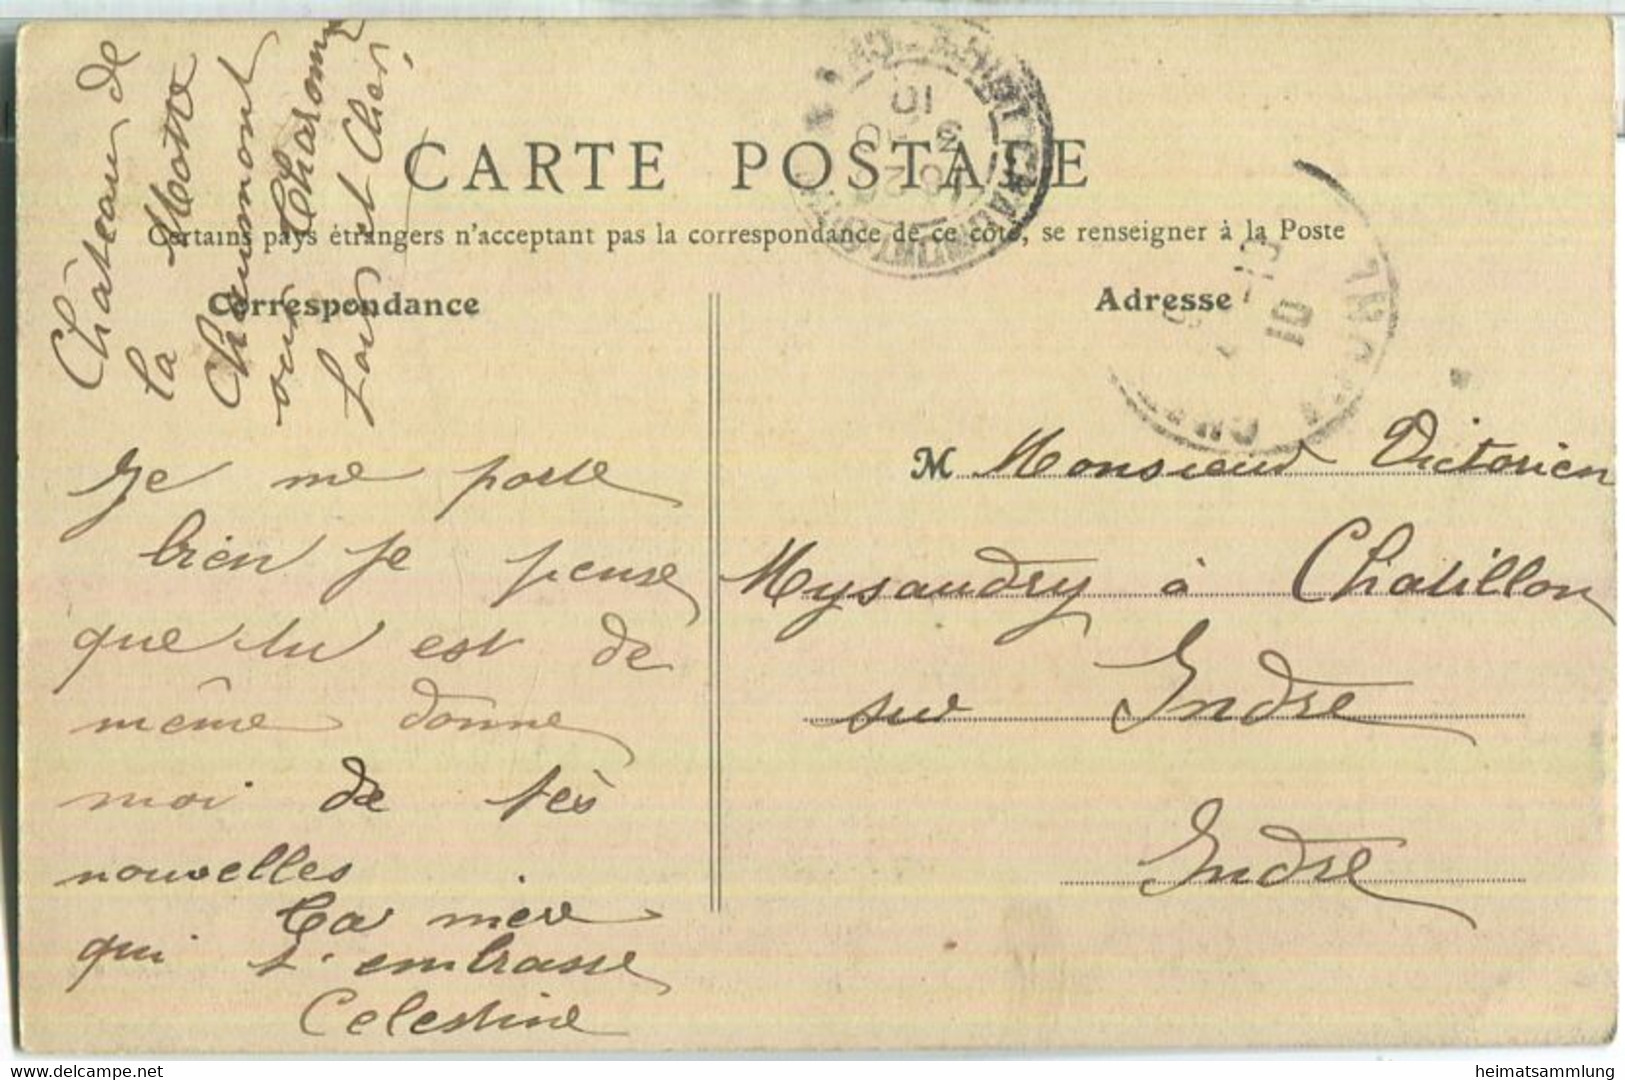 CARTE POSTALE
Certains pays étrangers n'acceptent pas la correspondance de ce côté, se renseigner à la Poste
Correspondance
Adresse
Château de
la Motte
Chaumont
sur Tharonne
Loir et Cher
Je me porte
bien je pense
que tu est de
même donne
moi de tes
nouvelles
Ta mère
qui t'embrasse
Celestine
M Monsieur Victorien
Mysaudry à Chatillon
sur Indre
Indre
delcampe.net
heimatsammlung